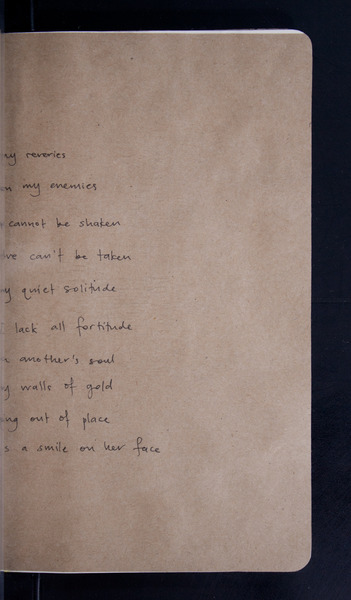 reveries
my enemies
cannot be shaken
can't be taken
quiet solitude
lack all fortitude
another's soul
walls of gold
out of place
a smile on her face